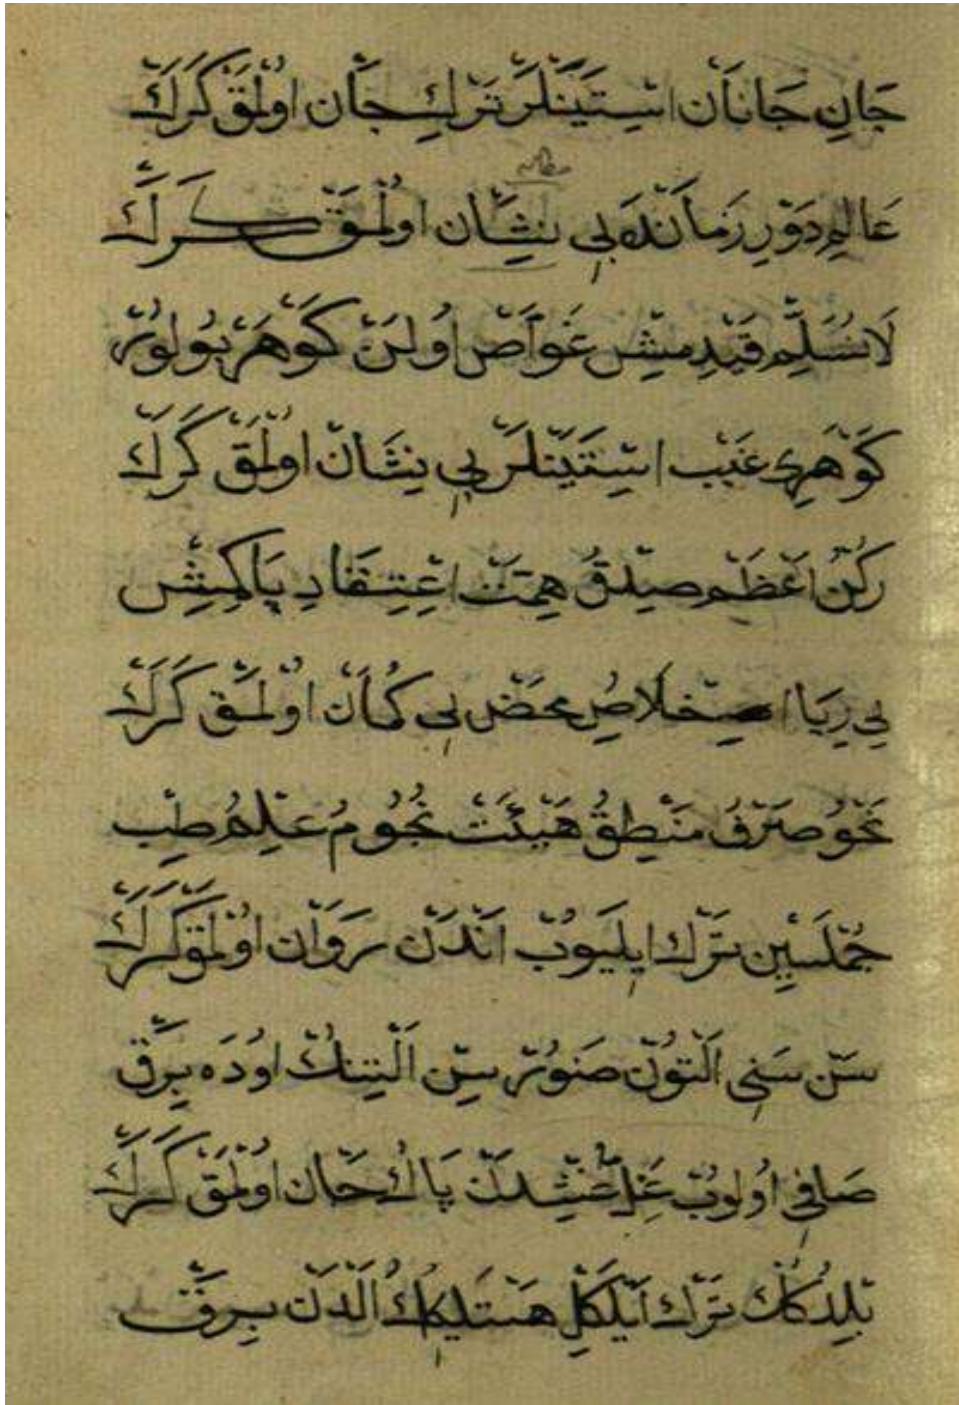 جَانِ جَانَان اسْتَيَنْلَرْ تَرْكِ جَان اوُلْمَقْ كَرَكْ
عَالَمِ دَوْرِ زَمَانْدَه بِي نِشَان اوُلْمَقْ كَرَكْ
لَا نُسَلِّمْ قَيْدِ مِشِسْ غَوَّاصْ اوُلَنْ كَوْهَرْ بُولُورْ
كَوْهَرِ غَيْب اسْتَيَنْلَرْ بِي نِشَانْ اوُلْمَقْ كَرَكْ
رُكْنِ اعْظَمْ صِدْقُ هِمَّتْ اعْتِقَادِ پَاكِمِشِسْ
بِي رِيَا اخْلَاصِ مَحْضْ بِي كُمَانْ اوُلْمَقْ كَرَكْ
نَحْوُ صَرْفُ مَنْطِقُ هَيْئَتْ نُجُومُ عِلْمُ طِبْ
جُمْلَسِينْ تَرْك ايِلَيوُبْ انْدَنْ رَوَانْ اوُلْمَقْ كَرَكْ
سَنْ سَنِي الْتُونْ صَنُورْسِنْ الْتِنِكْ اوُدَه بِرَقْ
صَافِي اوُلُوبْ غِلُّ غِشِدَنْ پَاكْ جَان اوُلْمَقْ كَرَكْ
بِلْدِكُكْ تَرْك ايْلَكِلْ هَسْتَلِكِكْ الْدَنْ بِرَقْ